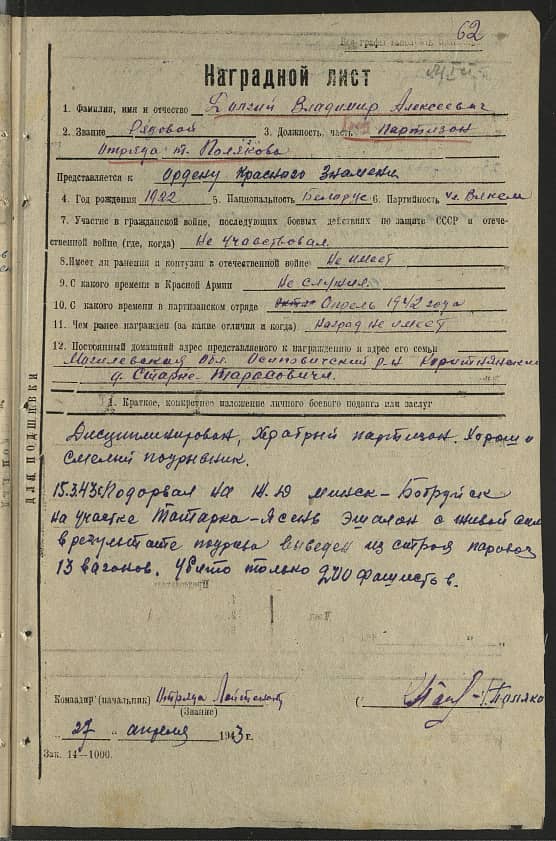 62
Наградной лист
1. Фамилия, имя и отчество Долгий Владимир Алексеевич
2. Звание Рядовой 3. Должность, часть партизан
Отряда т. Полякова
Представляется к Ордену Красного Знамени
4. Год рождения 1922 5. Национальность Беларус 6. Партийность чл. Влксм
7. Участие в гражданской войне, последующих боевых действиях по защите СССР и отече-
ственной войне (где, когда) Не участвовал
8. Имеет ли ранения и контузии в отечественной войне Не имеет
9. С какого времени в Красной Армии Не служил
10. С какого времени в партизанском отряде Апрель 1942 года
11. Чем ранее награжден (за какие отличия и когда) наград не имеет
12. Постоянный домашний адрес представляемого к награждению и адрес его семьи
Могилевская Обл. Осиповичский р-н
д. Старе-Тарасовичи
1. Краткое, конкретное изложение личного боевого подвига или заслуг
Дисциплинирован, Храбрый партизан. Хороши
смелый подрывник.
15.3.43г Подорвал на Ж.Д Минск-Бобруйск
на участке Татарка-Ясень Эшалон с живой сил
в результате подрыва выведен из строя паровоз
13 вагонов. Убито только 200 фашистов.
ДЛЯ ПОДШИВКИ
Командир (начальник) Отряда
(Звание)
"27" апреля 1943 г.
Зак. 14-1000.